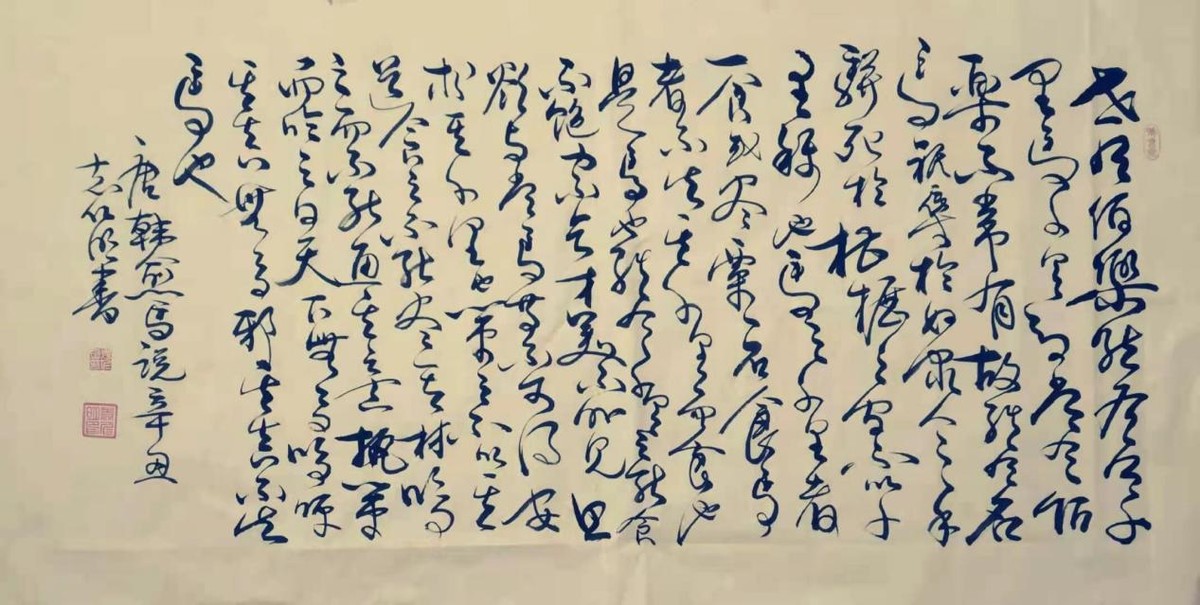 世有伯樂然後有千
里馬千里馬常有而伯
樂不常有故雖有名
馬祇辱於奴隸人之手
駢死於槽櫪之間不以千
里稱也馬之千里者
一食或盡粟一石食馬
者不知其千里而食也
是馬也雖有千里之能食
不飽力不足才美不外見且
欲與常馬等不可得安
求其千里也策之不以其
道食之不能盡其材鳴
之而不能通其意執策
而臨之曰天下無馬嗚呼
其真無馬邪其真不知
馬也
唐韓愈馬說辛丑
志明書